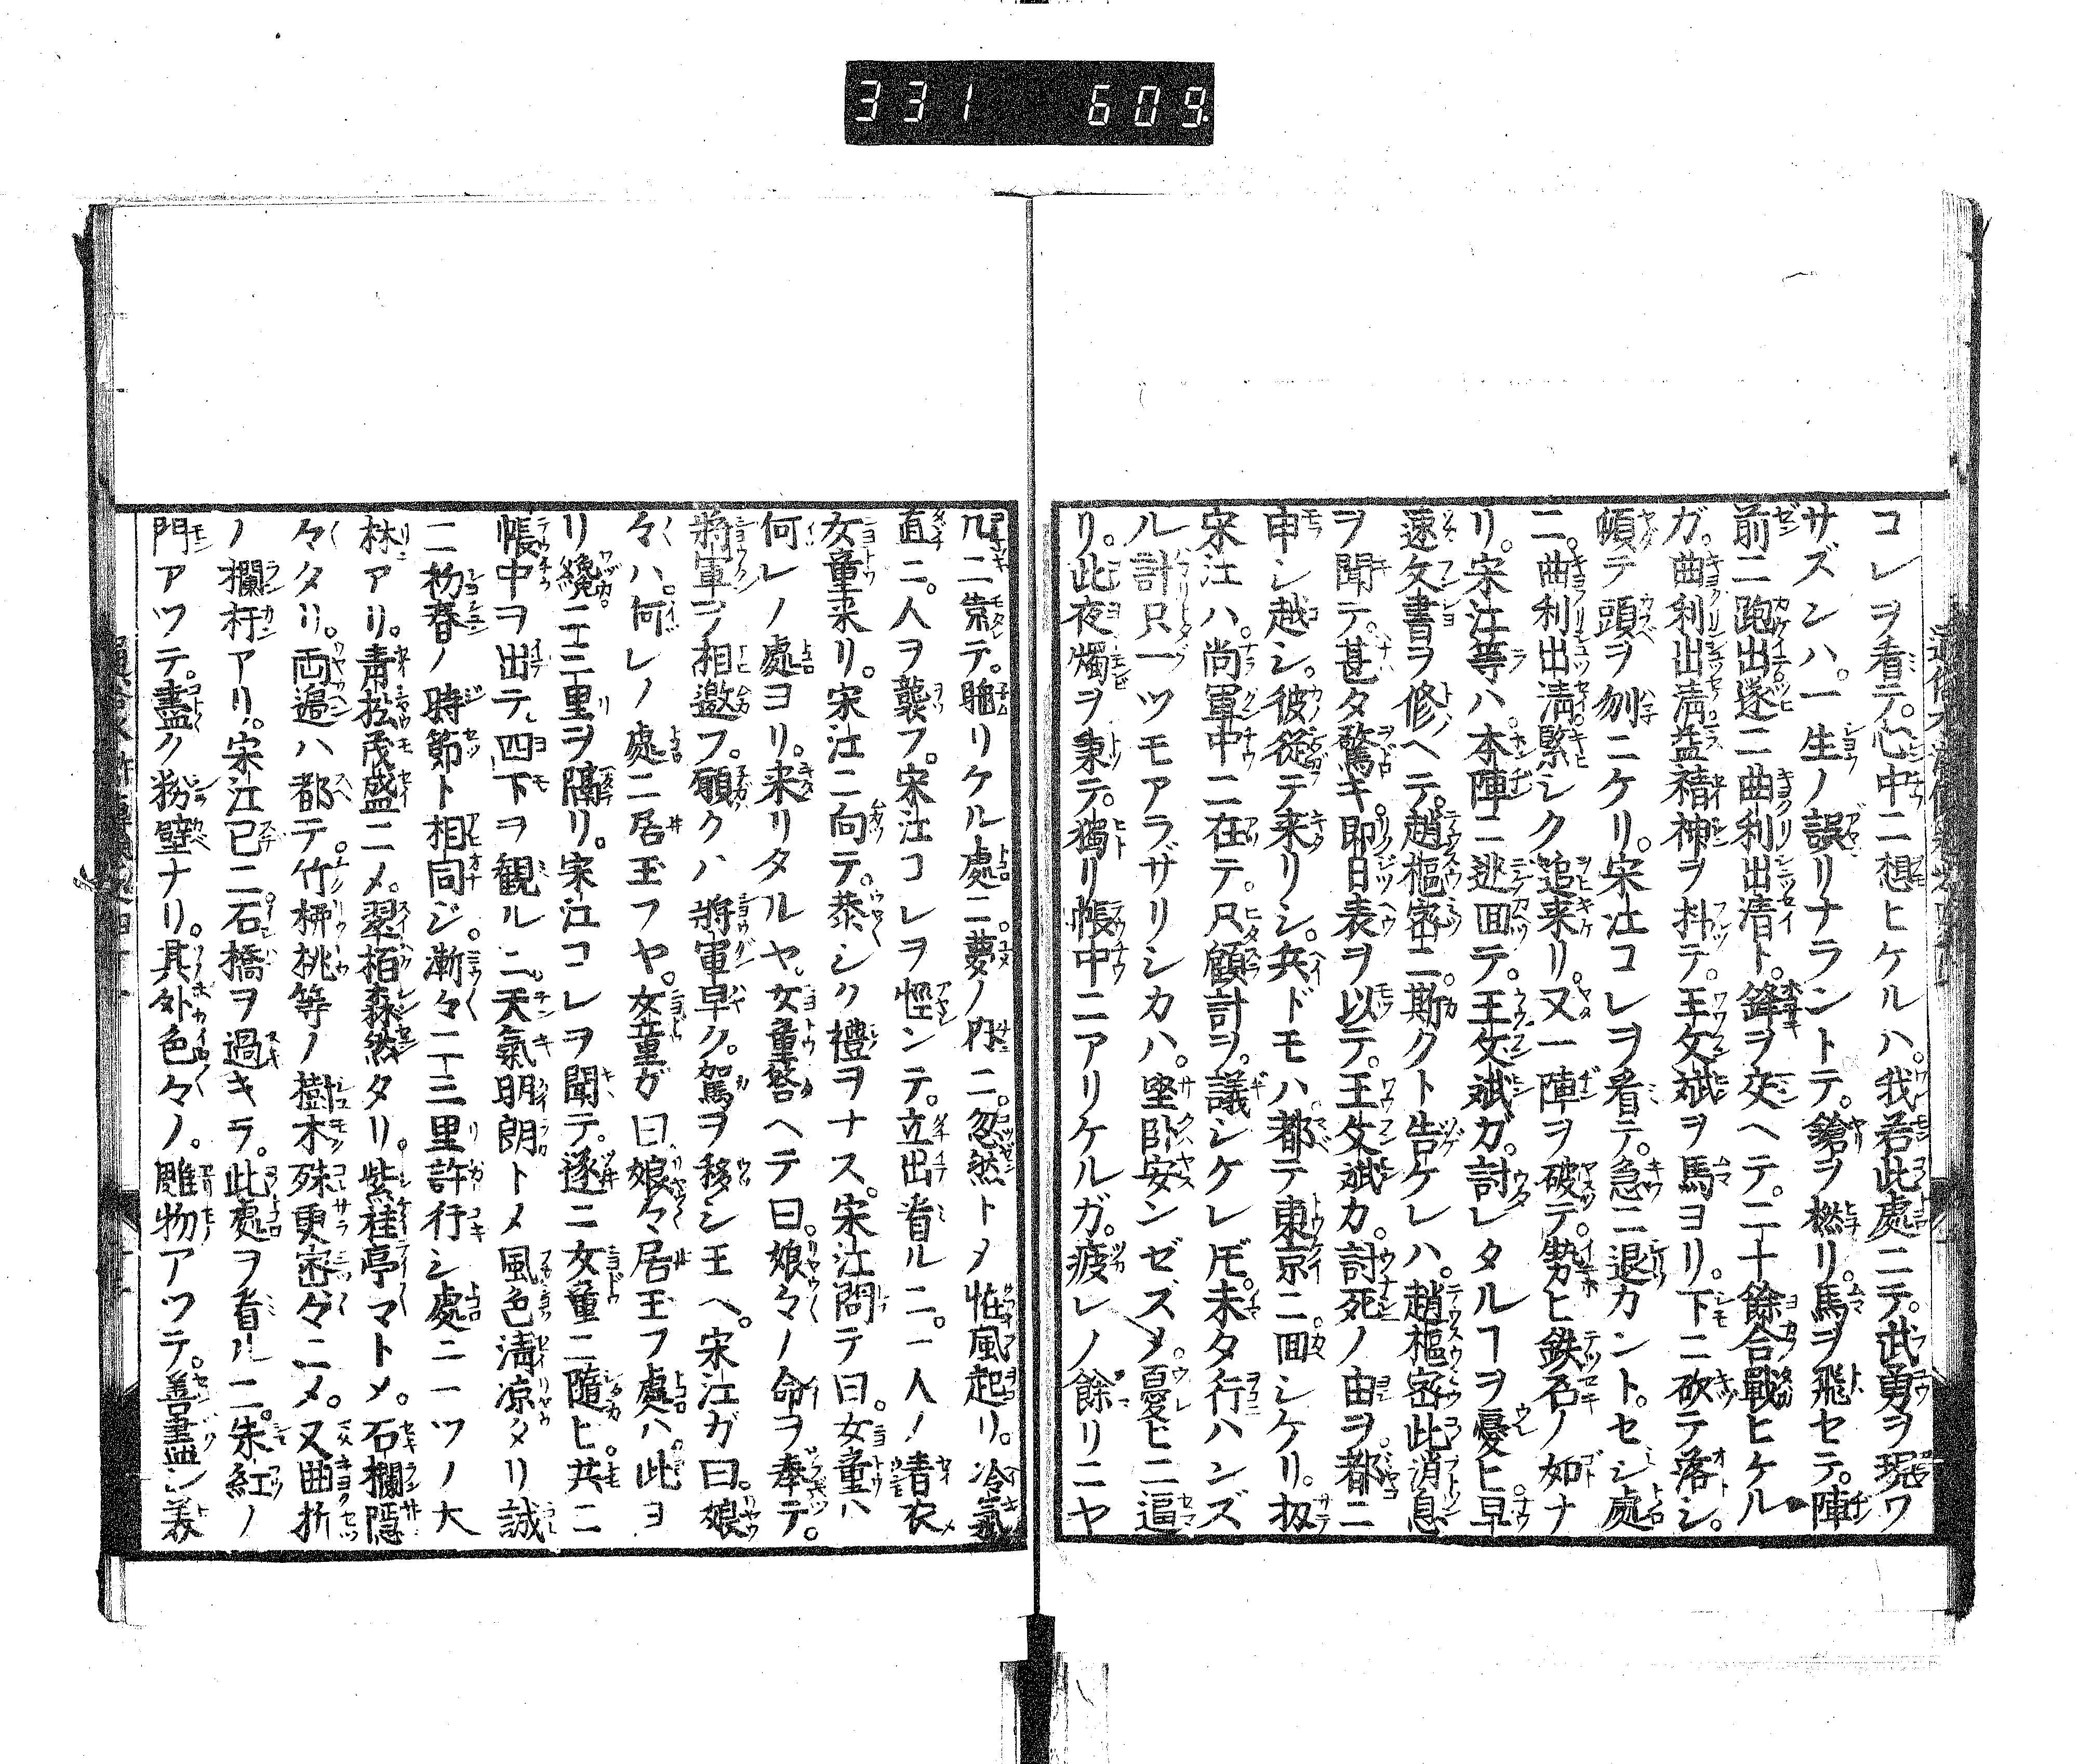 331 609
コレヲ看テ。心中ニ想ヒケルハ。我若此處ニテ。武勇ヲ現ワ
サズンハ。一生ノ誤リナラントテ。鎗ヲ撚リ。馬ヲ飛セテ。陣
前ニ跑出遂ニ曲利出清ト。鋒ヲ交ヘテ。二十餘合戰ヒケル
ガ。曲利出清益精神ヲ抖テ。王文斌ヲ馬ヨリ。下ニ砍テ落シ。
頓テ頭ヲ刎ニケリ。宋江コレヲ看テ。急ニ退カント。セシ處
ニ。曲利出清緊シク追来リ。又一陣ヲ破テ。勢ヒ鉄石ノ如ナ
リ。宋江等ハ。本陣ニ逃回テ。王文斌ガ。討レタルヿヲ憂ヒ。早
速文書ヲ修ヘテ。趙樞密ニ。斯クト告ケレハ。趙樞密此消息
ヲ聞テ。甚タ驚キ。即日表ヲ以テ。王文斌カ。討死ノ由ヲ。都ニ
申シ越シ。彼從テ来リシ。兵ドモハ。都テ東京ニ回シケリ。扨
宋江ハ。尚軍中ニ在テ。只顧計ヲ。議シケレ𪜈。未タ行ハンズ
ル計只一ツモアラザリシカハ。坐卧安ンゼズメ。憂ヒニ逼
リ。此夜燭ヲ秉テ。獨リ帳中ニアリケルガ。疲レノ餘リニヤ
几ニ靠テ。睡リケル處ニ。夢ノ内ニ。忽然トメ怪風起リ。冷氣
直ニ。人ヲ襲フ。宋江コレヲ恠ンテ。立出看ルニ。一人ノ青衣
女童来リ。宋江ニ向テ。恭シク禮ヲナス。宋江問テ曰。女童ハ
何レノ處ヨリ。来リタルヤ。女童答ヘテ曰。娘々ノ命ヲ奉テ。
將軍ヲ相邀フ。願クハ將軍早ク。駕ヲ移シ玉ヘ。宋江ガ曰。娘
々ハ。何レノ處ニ居玉フヤ。女童ガ曰。娘々居玉フ處ハ。此ヨ
リ纔ニ二三里ヲ隔リ。宋江コレヲ聞テ。遂ニ女童ニ隨ヒ。共ニ
帳中ヲ出テ。四下ヲ観ルニ。天氣明朗トメ風色淸凉タリ誠
ニ初春ノ時節ト相同ジ。漸々二三里許行シ處ニ一ツノ大
林アリ。青松茂盛ニメ。翠栢森然タリ。紫桂亭マトメ。石欄隱
々タリ。両邉ハ都テ。竹柳桃等ノ樹木殊更密々ニメ。又曲折
ノ欄杆アリ。宋江已ニ石橋ヲ過キテ。此處ヲ看ルニ。朱紅ノ
門アツテ。盡ク粉壁ナリ。其外色々ノ。雕物アツテ。善盡シ美